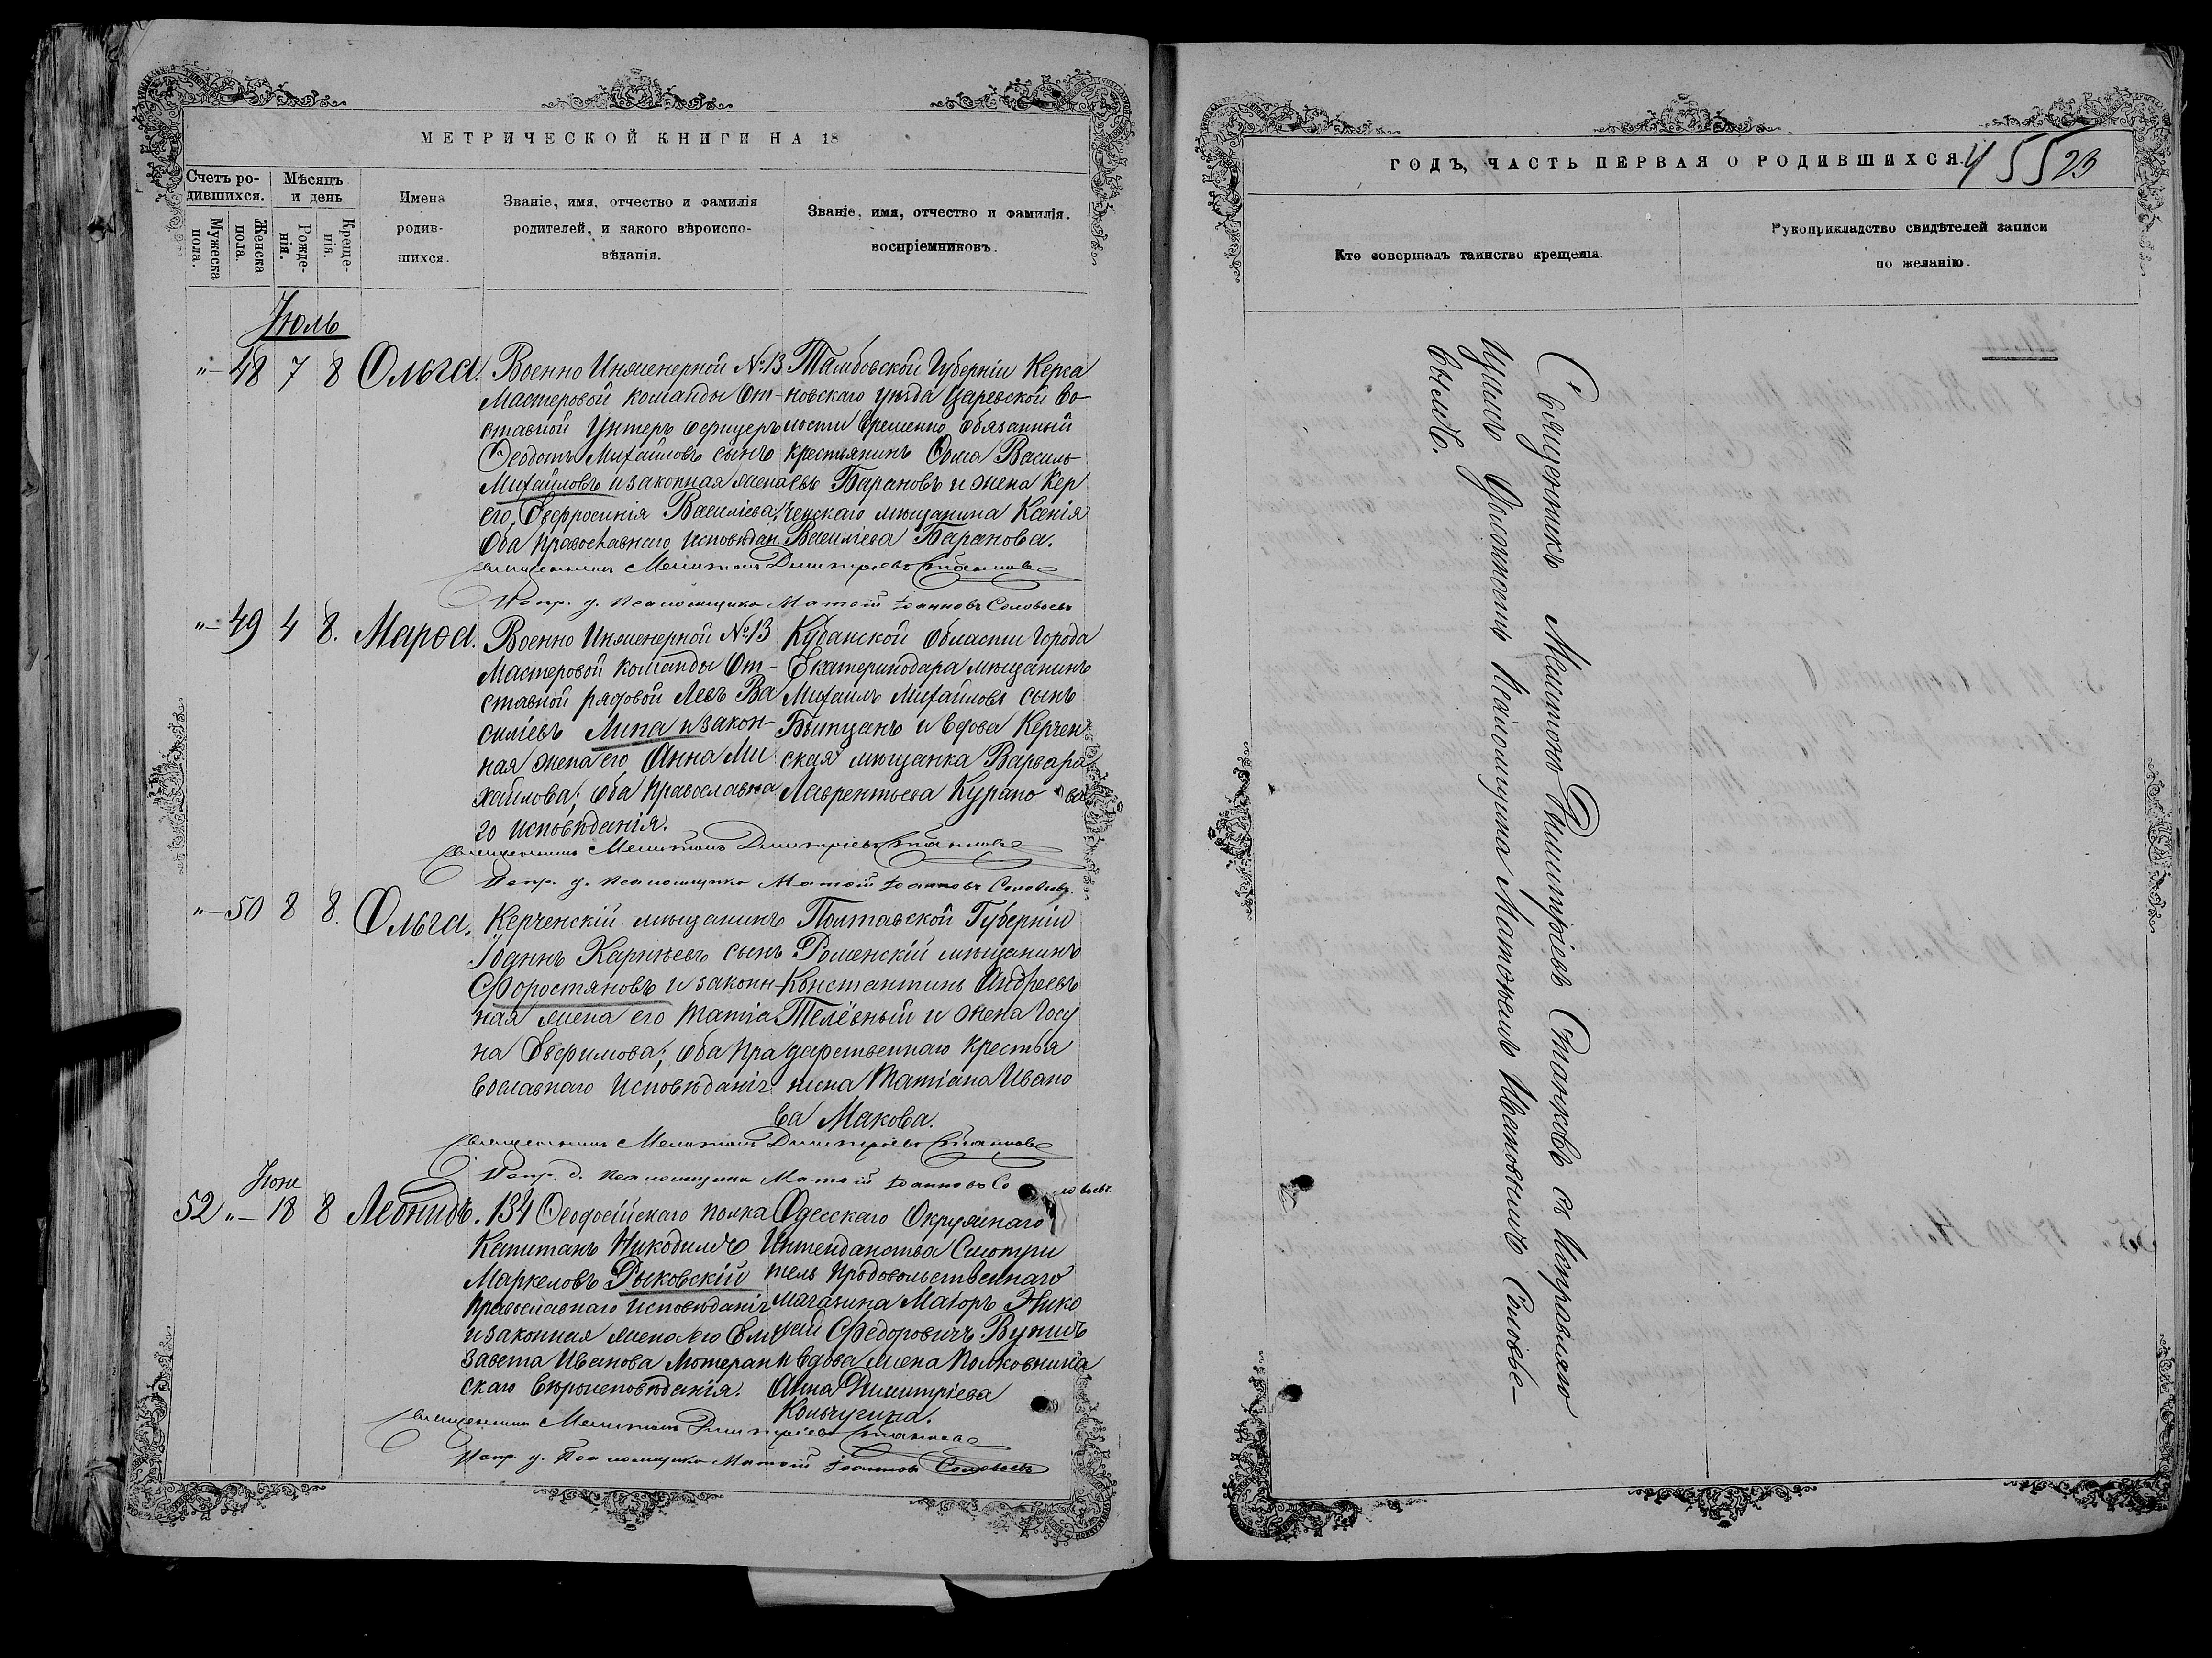 МЕТРИЧЕСКОЙ КНИГИ НА 18
Счетъ ро-
дившихся.
Мужеска
пола.
Женска
пола.
Мѣсяцъ
и день
Рожде-
нія.
Креще-
нія.
Имена
родив-
шихся.
Званіе, имя, отчество и фамилія
родителей, и какого вѣроиспо-
вѣданія.
Званіе, имя, отчество и фамилія.
воспріемниковъ.
Іюль
"- 48 7 8 Ольга.
Военно Инженерной №13
Мастеровой команды От-
ставной Унтеръ офицеръ
Ѳеодотъ Михайловъ сынъ
Михайловъ и законная жена
его, Евфросинія Василіева,
Оба православнаго исповѣдан.
Тамбовской Губерніи Керса
новскаго уѣзда Царевской во-
лости временно обязанный
крестьянинъ Ѳома Василь
евъ Барановъ и жена Кер
ченскаго мѣщанина Ксенія
Василіева Баранова.
Священникъ Мелитонъ Димитріевъ Станковъ
Испр. д. Псаломщика Матѳій Іоанновъ Соловьевъ
"- 49 4 8. Марѳа.
Военно Инженерной №13
Мастеровой команды От-
ставной рядовой Левъ Ва
силіевъ Липа и закон-
ная жена его Анна Ми
хайлова; оба православна
го исповѣданія.
Кубанской области города
Екатеринодара мѣщанинъ
Михаилъ Михайловъ сынъ
и вдова Керчен
ская мѣщанка Варвара
Лаврентьева Курано ва
Священникъ Мелитонъ Димитріевъ Станковъ
Испр. д. Псаломщика Матѳій Іоанновъ Соловьевъ.
"- 50 8 8. Ольга.
Керченскій мѣщанинъ
Іоаннъ Карпѣевъ сынъ
Форостяновъ и закон-
ная жена его Татіа
на Евфимова; оба пра
вославнаго исповѣданія
Полтавской Губерніи
Роменскій мѣщанинъ
Константинъ Андреевъ
Телёвный и жена Госу
дарственнаго крестья
нина Татіана Ивано
ва Макова.
Священникъ Мелитонъ Димитріевъ Станковъ
Испр. д. Псаломщика Матѳій Іоанновъ Со ловьевъ.
Іюнь
52 "- 18 8 Леонидъ.
134 Ѳеодосійскаго полка
Капитанъ Никодимъ
Маркеловъ Рыковскій
православнаго исповѣданія
и законная жена его Ели
завета Иванова Лютеран
скаго вѣроисповѣданія.
Одесскаго Окружнаго
Интенданства Смотри
тель Продовольственнаго
магазина Маіоръ Нико
лай Федоровичъ
и вдова жена Полковника
Анна Димитріева
Кольчугина.
Священникъ Мелитонъ Димитріевъ Станковъ
Испр. д. Псаломщика Матѳій Іоанновъ Соловьевъ
ГОДЪ, ЧАСТЬ ПЕРВАЯ О РОДИВШИХСЯ.
455 23
Кто совершалъ таинство крещенія.
Рукоприкладство свидѣтелей записи
по желанію.
Священникъ Мелитонъ Димитріевъ Станковъ съ Исправляю
щимъ Должность Псаломщика Матѳеемъ Ивановымъ Соловье-
вымъ.